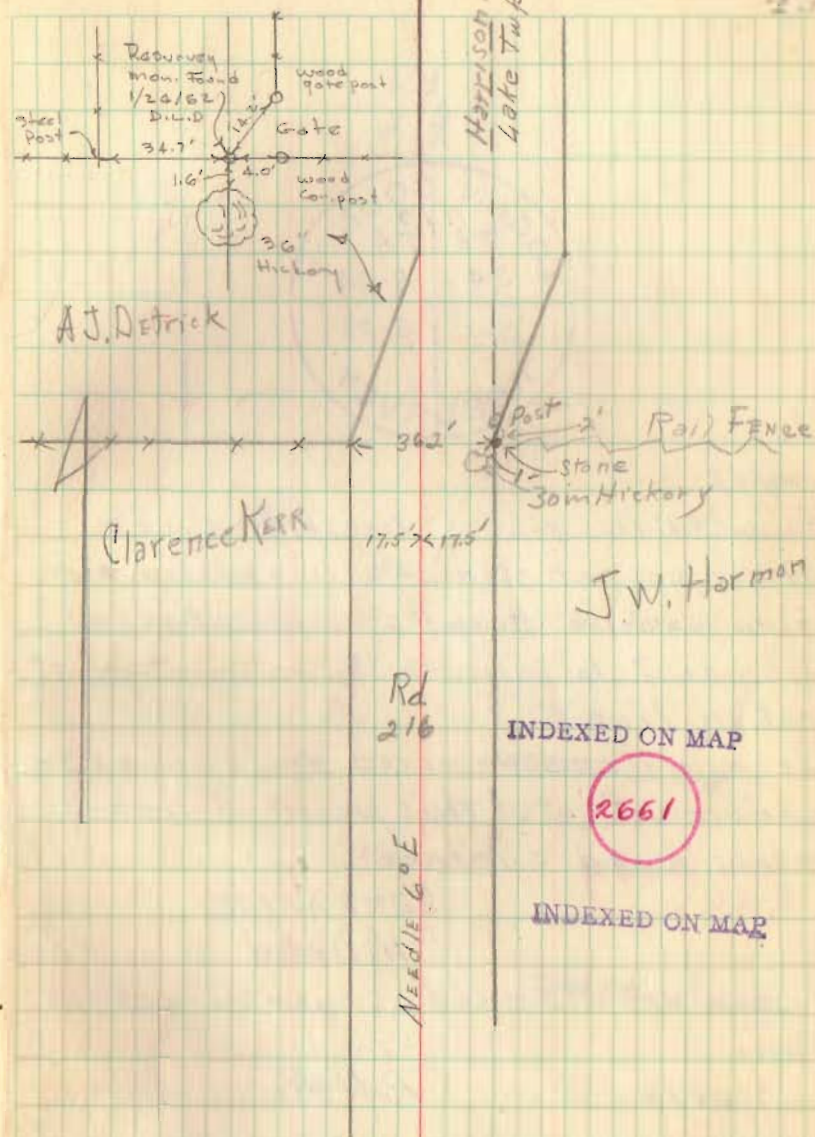 Resurvey
mon. Found
1/26/62
D.L.D
wood
gate post
steel
post
34.7'
Gate
1.6'
4.0'
wood
Cor. post
36"
Hickory
Harrison
Lake Twp
A.J. Detrick
362'
Post
2'
Rail Fence
Stone
30in Hickory
Clarence Kerr
17.5' 17.5'
J.W. Harmon
Rd
216
INDEXED ON MAP
2661
Needle 6° E
INDEXED ON MAP